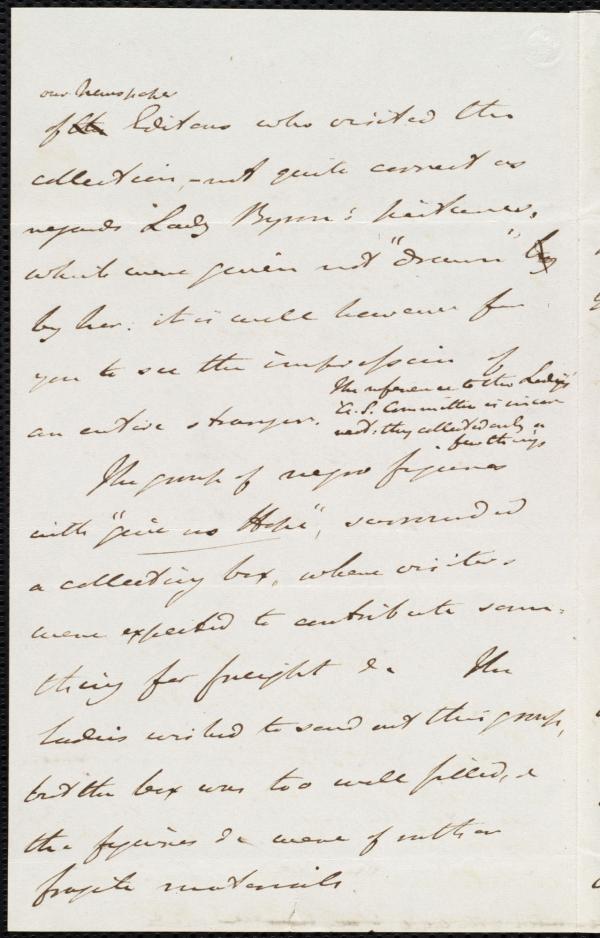 our Newspaper
of the Editors who visited the
collection, - not quite correct as
regards Lady Byron's pictures,
which were given not "drawn" by
by her: it is well however for
you to see the impression of
an entire stranger.
The reference to the Ladys'
A. S. Committee is incor
rect: they collected only a
few things
The group of negro figures
with "give us Hope", surrounded
a collecting box, where visitors
were expected to contribute some-
thing for freight &c The
ladies wished to send out this group,
but the box was too well filled, &
the figures &c were of rather
fragile materials.